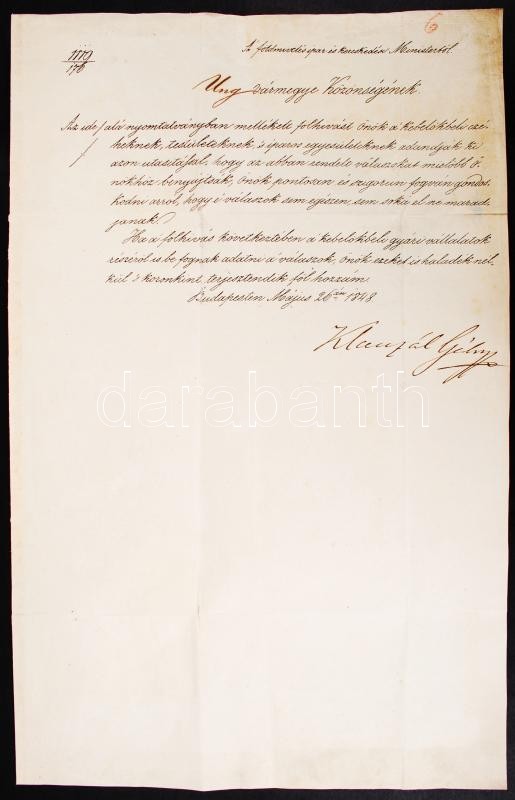 6
1119
176
A földmivelés ipar és kereskedési Ministertől.
Ung vármegye Közönségének
Az ide ·/· alá nyomtatványban mellékelt fölhivást Önök a kebelökbeli czé-
heknek, testületeknek, 's iparos egyesületeknek adandják ki
azon utasítással, hogy az abban rendelt válaszokat mielőbb Ö-
nökhöz benyújtsák, Önök pontosan és szigorun fogván gondos-
kodni arról, hogy e' válaszok sem egészen, sem soká el ne marad-
janak.
Ha a' fölhivás következtében a' kebelökbeli gyári vállalatok
részéről is be fognak adatni a' válaszok, Önök ezeket is haladék nél-
kül 's koronkint terjesztendik föl hozzám.
Budapesten Május 26án 1848
Klauzál Gábor
darabanth